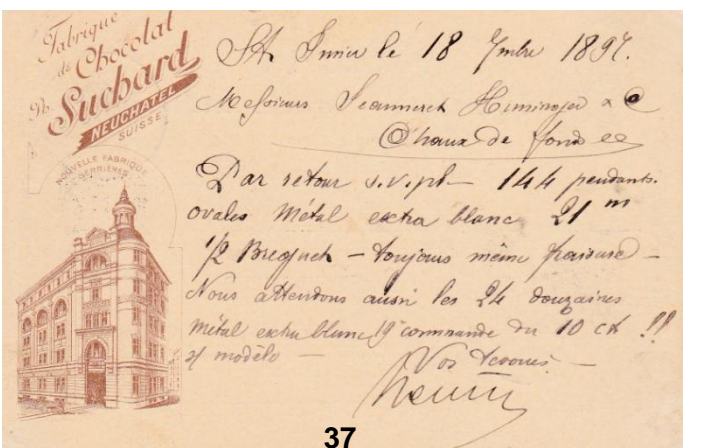 Fabrique
de Chocolat
Ph. Suchard
NEUCHATEL
SUISSE
NOUVELLE FABRIQUE
SERRIÈRES
St Imier le 18 7mbre 1897.
Messieurs Jeanneret & C
Chaux de fonds
Par retour s.v.pl— 144 pendants
ovales métal extra blanc 21 m
1/2 Breguet — toujours même —
Nous attendons aussi les 24 douzaines
métal extra blanc 19 commande du 10 ct !!
s/ modèle —
Vos dévoués —
37